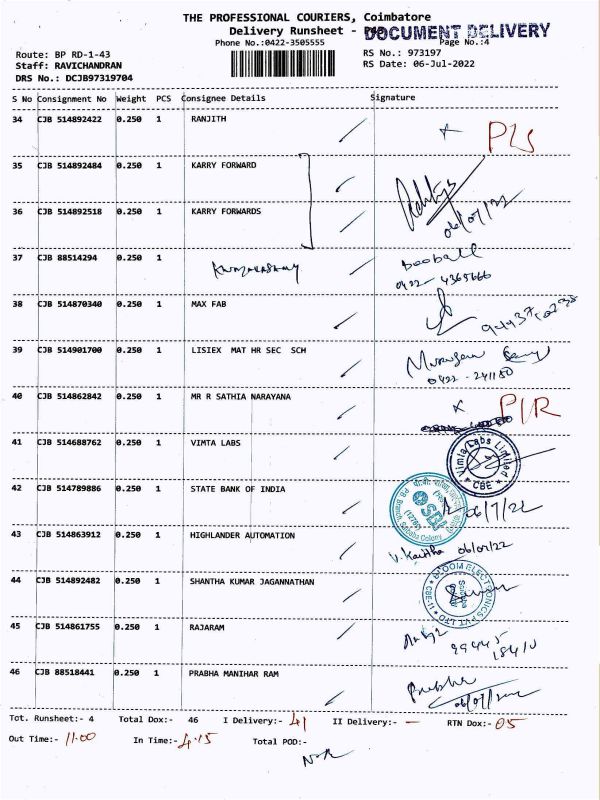 THE PROFESSIONAL COURIERS, Coimbatore
Delivery Runsheet -
DOCUMENT DELIVERY
Phone No.:0422-3505555
Page No.:4
Route: BP RD-1-43
RS No.: 973197
Staff: RAVICHANDRAN
RS Date: 06-Jul-2022
DRS No.: DCJB97319704
S No Consignment No Weight PCS Consignee Details Signature
34 CJB 514892422 0.250 1 RANJITH
35 CJB 514892484 0.250 1 KARRY FORWARD
36 CJB 514892518 0.250 1 KARRY FORWARDS 06/07/22
37 CJB 88514294 0.250 1
0422-4365666
38 CJB 514870340 0.250 1 MAX FAB
39 CJB 514901700 0.250 1 LISIEX MAT HR SEC SCH Murugan
0422-241180
40 CJB 514862842 0.250 1 MR R SATHIA NARAYANA
41 CJB 514688762 0.250 1 VIMTA LABS Vimta Labs Limited CBE
42 CJB 514789886 0.250 1 STATE BANK OF INDIA SBI 06/7/22
43 CJB 514863912 0.250 1 HIGHLANDER AUTOMATION 06/07/22
44 CJB 514892482 0.250 1 SHANTHA KUMAR JAGANNATHAN BLOOM ELECTRONICS PVT LTD CBE-11
45 CJB 514861755 0.250 1 RAJARAM 99445
18410
46 CJB 88518441 0.250 1 PRABHA MANIHAR RAM Prabha
Tot. Runsheet:- 4 Total Dox:- 46 I Delivery:- 41 II Delivery:- — RTN Dox:- 05
Out Time:- 11.00 In Time:- 4.15 Total POD:-